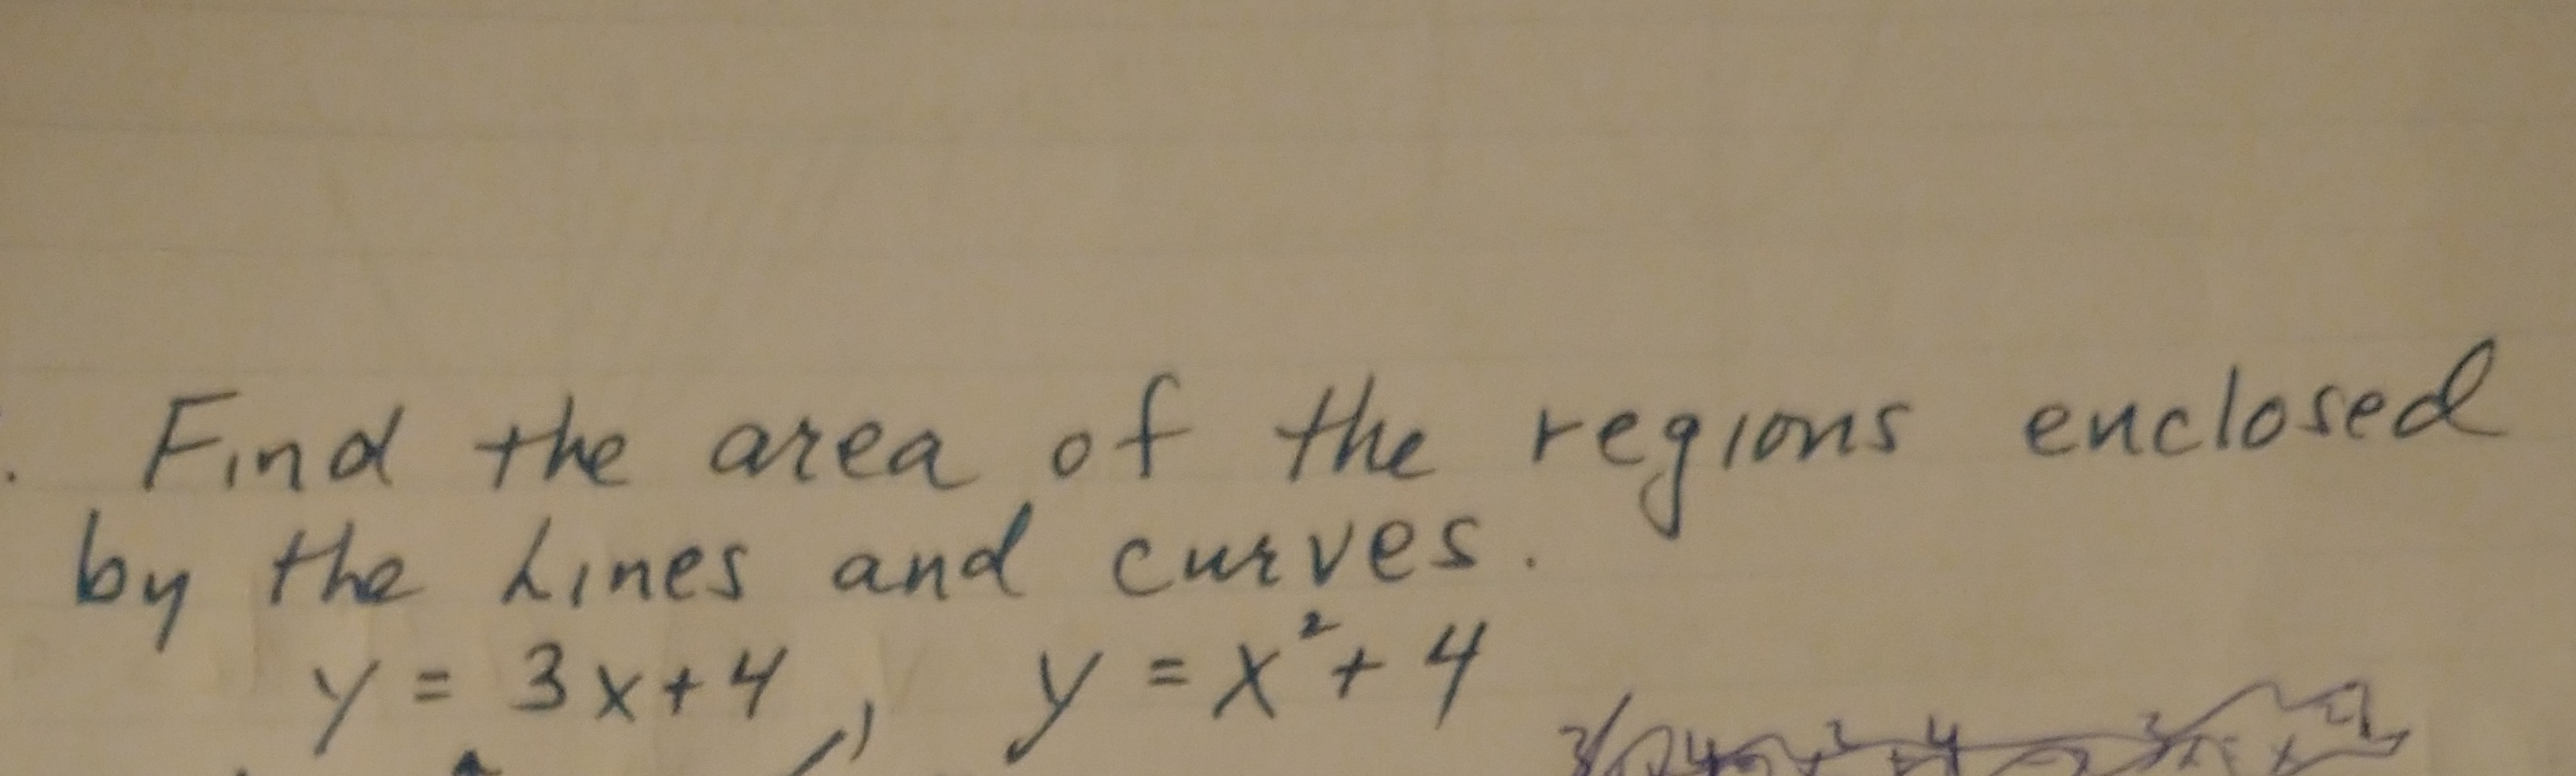 . Find the area of the regions enclosed
by the Lines and curves.
y = 3x+4, y = x²+4